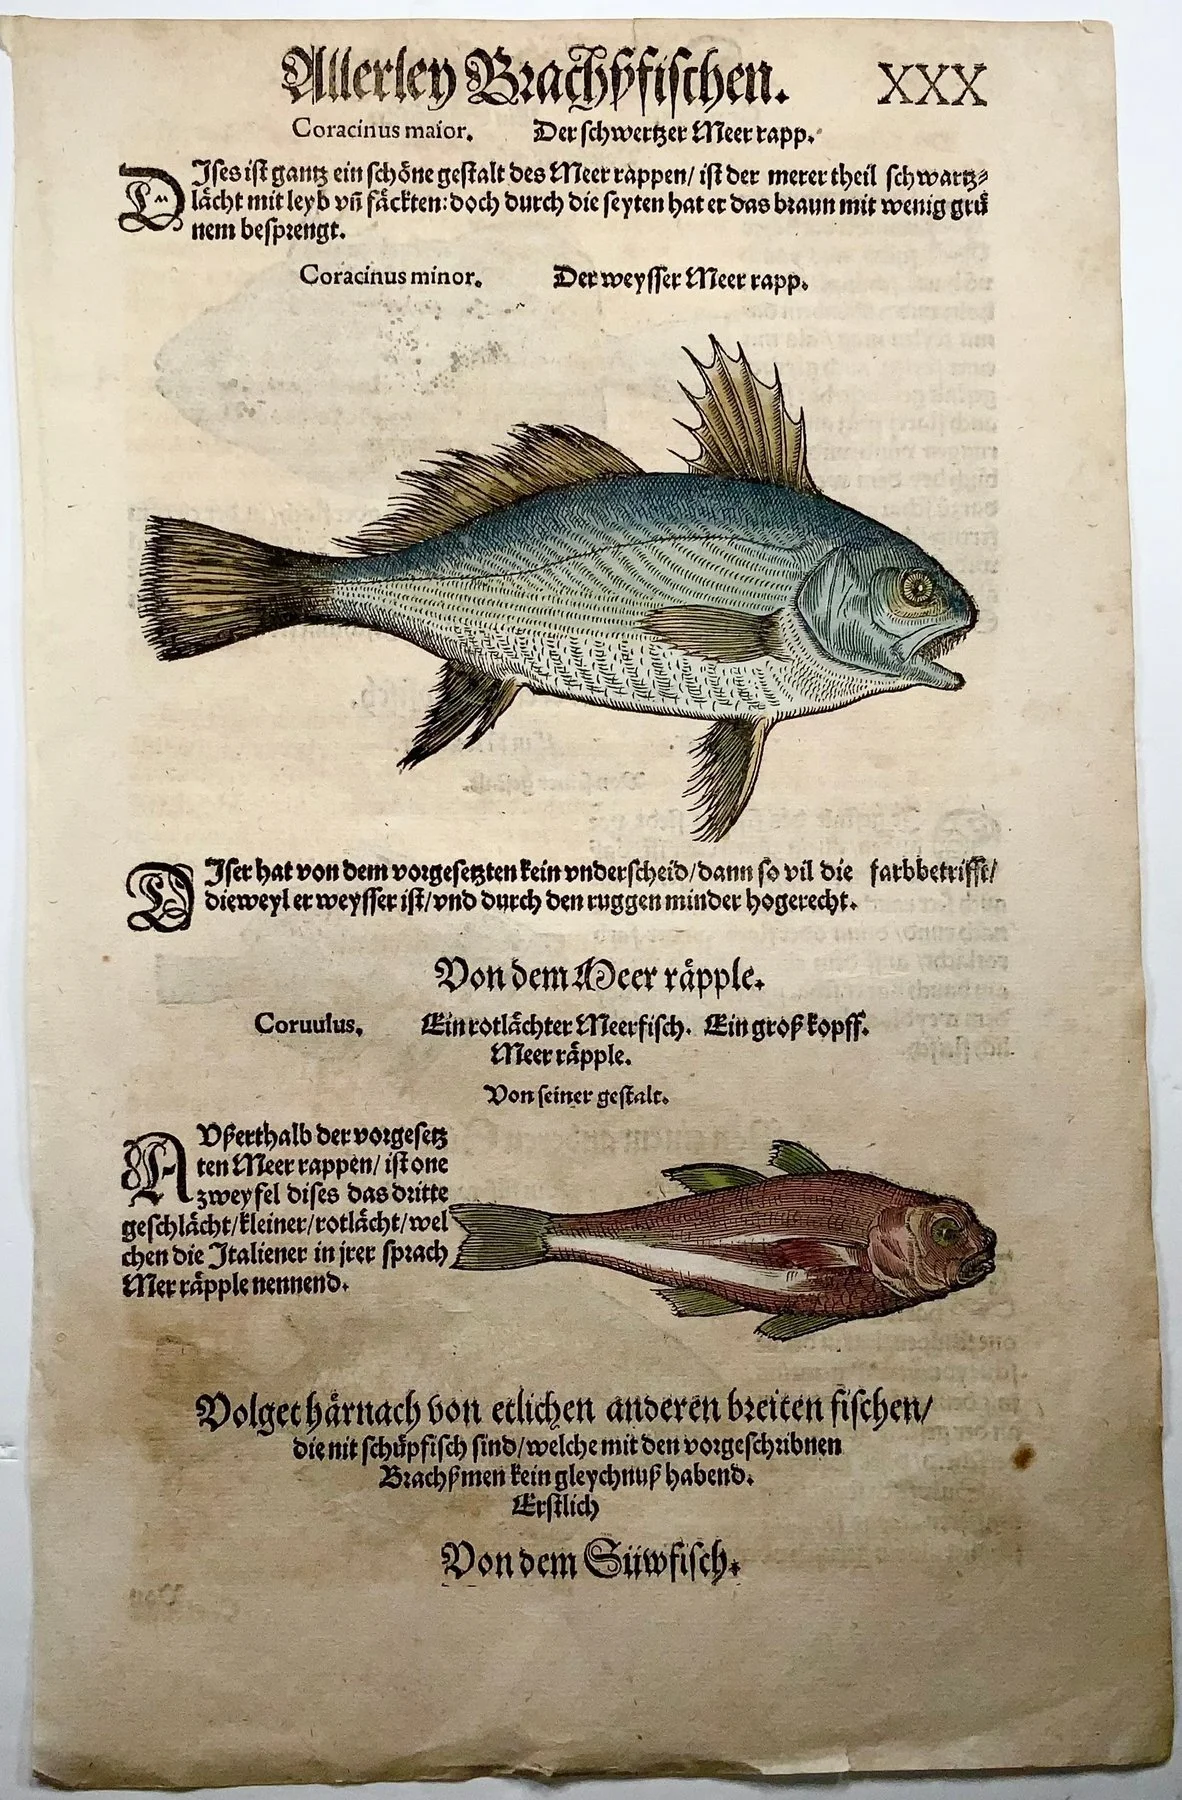 Allerley Brachßfischen. XXX
Coracinus maior. Der schwertzer Meer rapp.
DIses ist gantz ein schöne gestalt des Meer rappen/ ist der merer theil schwartz-
lächt mit leyb vn̄ fäckten: doch durch die seyten hat er das braun mit wenig grü
nem besprengt.
Coracinus minor. Der weysser Meer rapp.
DIser hat von dem vorgesetzten kein vnderscheid/dann so vil die farb betrifft/
dieweyl er weysser ist/vnd durch den ruggen minder hogerecht.
Von dem Meer räpple.
Coruulus. Ein rotlächter Meerfisch. Ein groß kopff.
Meer räpple.
Von seiner gestalt.
AVßerthalb der vorgesetz
ten Meer rappen/ ist one
zweyfel dises das dritte
geschlächt/kleiner/rotlächt/wel
chen die Italiener in jrer sprach
Mer räpple nennend.
Volget härnach von etlichen anderen breiten fischen/
die nit schüpfisch sind/welche mit den vorgeschribnen
Brachßmen kein gleychnuß habend.
Erstlich
Von dem Süwfisch.